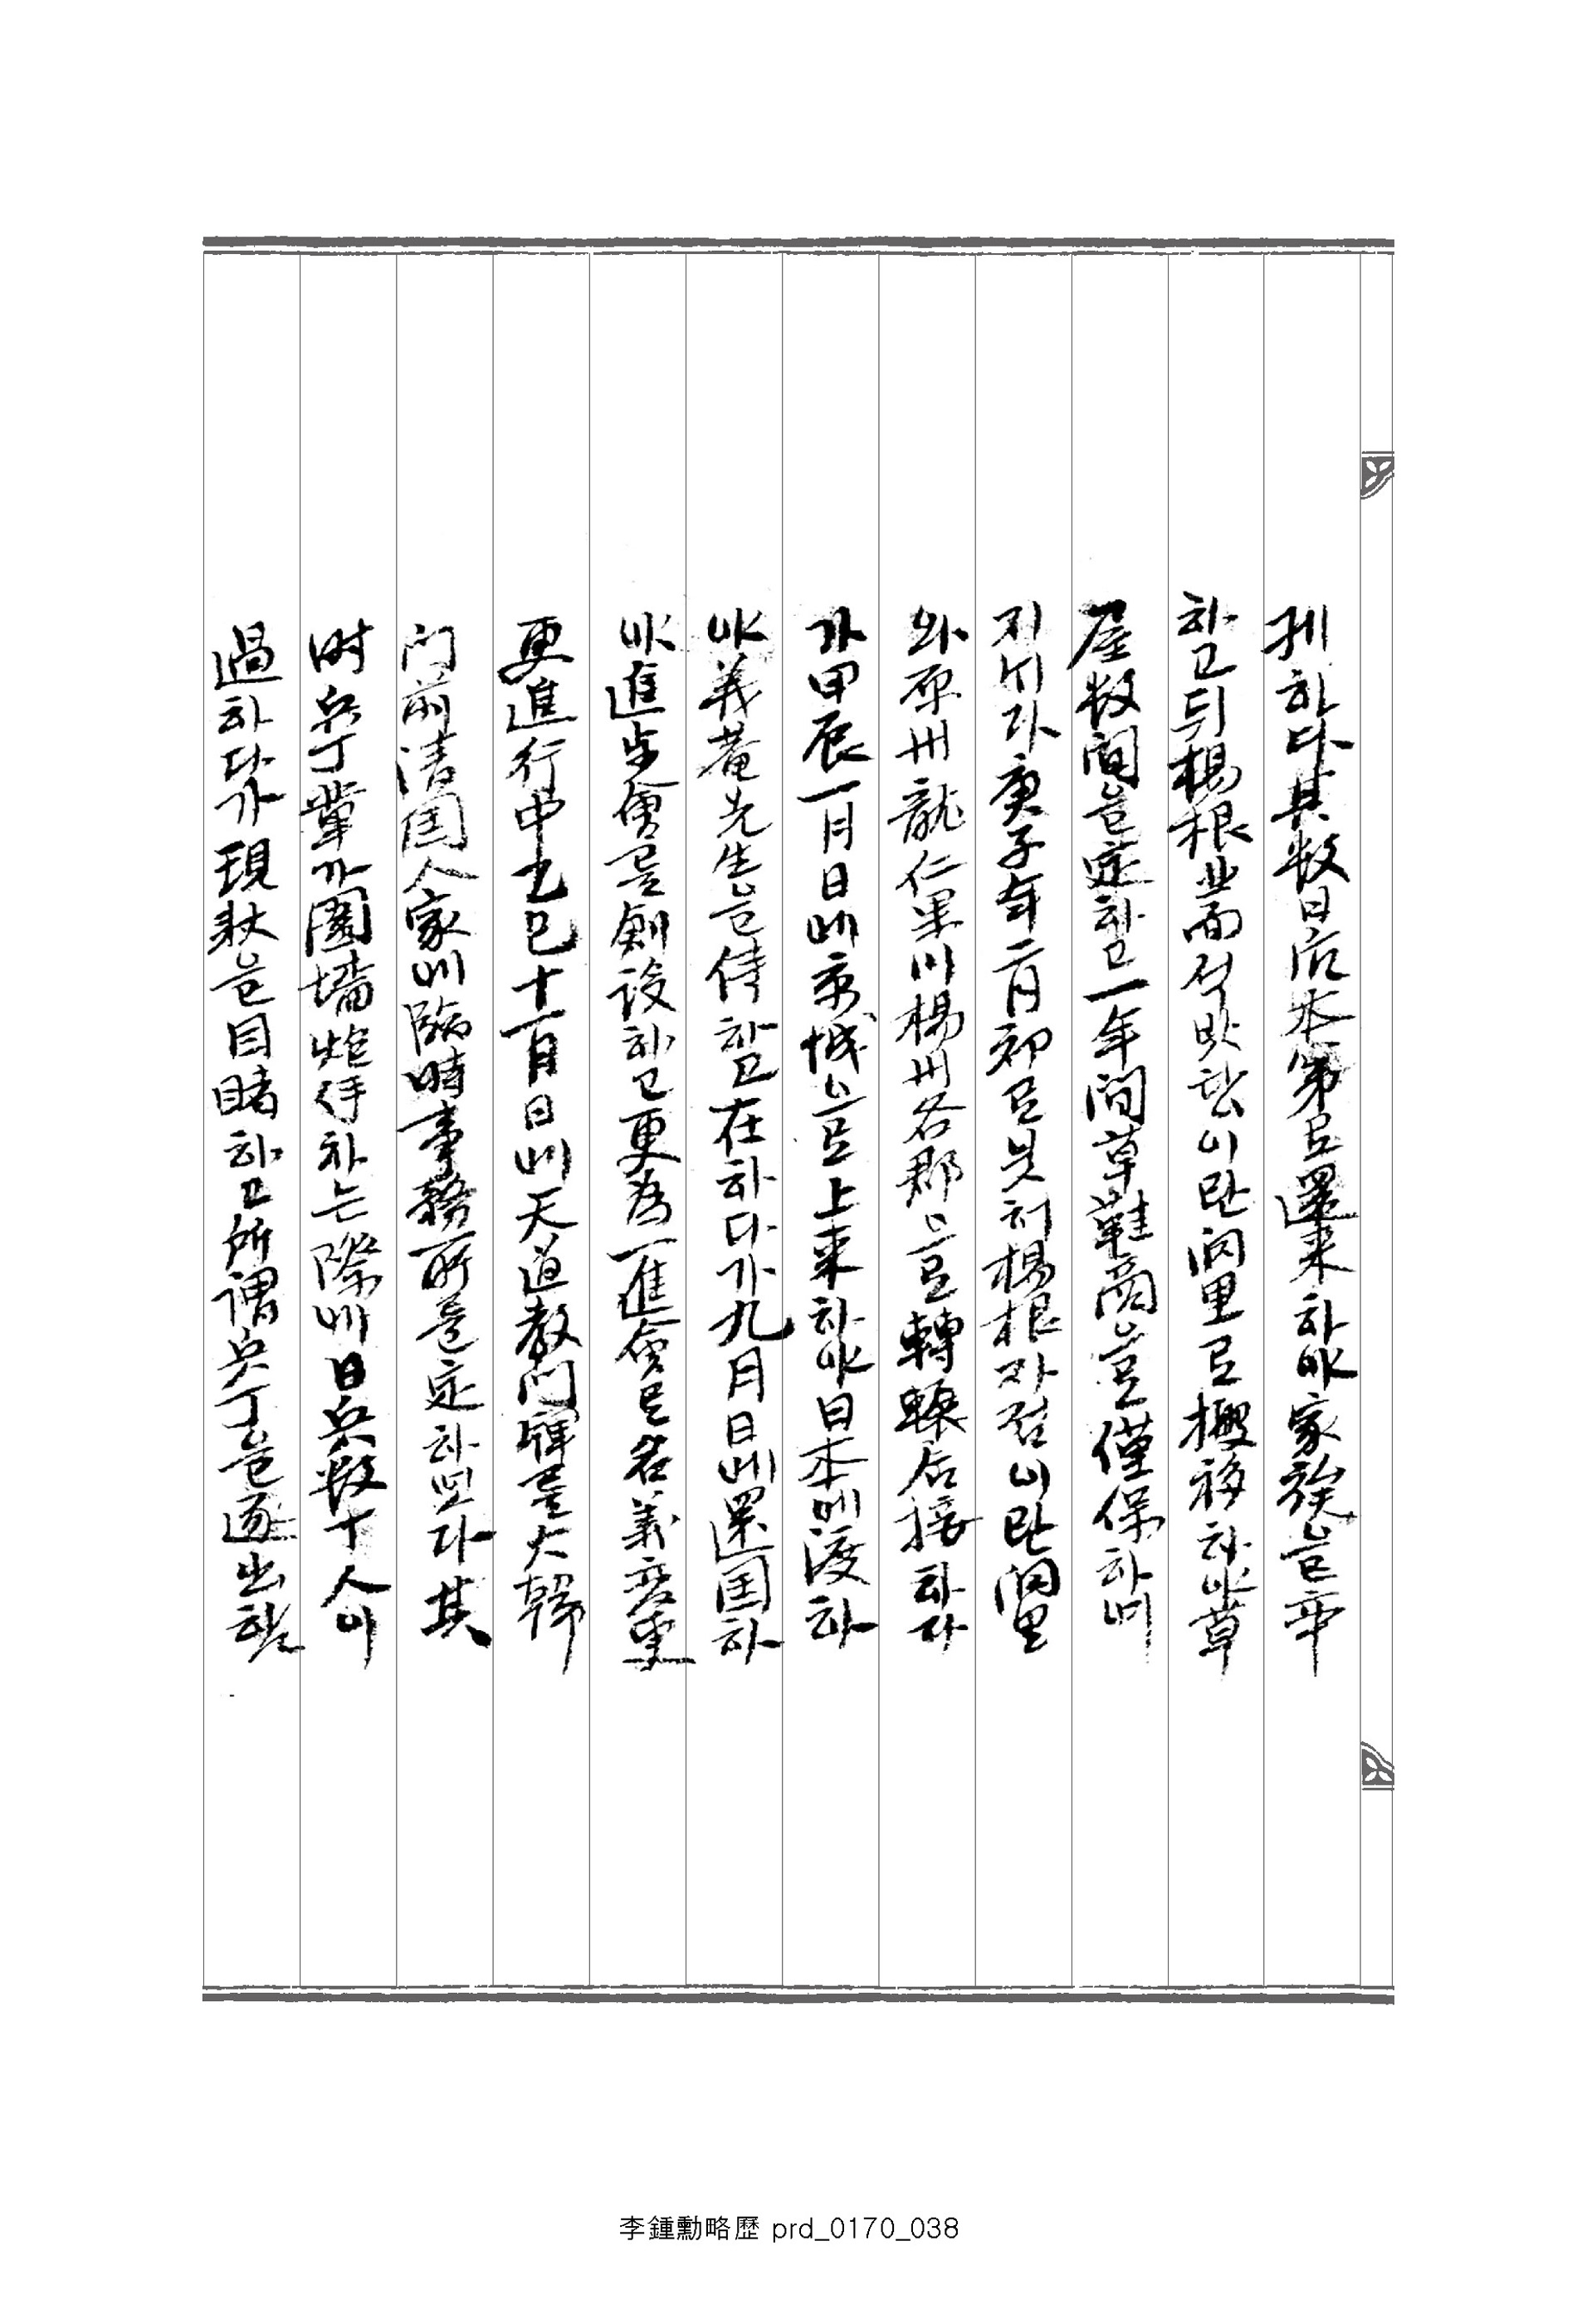 게하다其數日后本第로還来하야家族을率
하고뒤楊根北面석바탕이란洞里로搬移하야草
屋数间을定하고一年间草鞋商으로僅保하며
지니다庚子年二月初로又히楊根자점이란洞里
와原州龍仁果川楊州各郡으로轉轅居接하다
가甲辰一月日에京城으로上来하야日本에渡하
야義菴先生을侍하고在하다가九月日에還国하
야進步會를創設하고更為一進會로名義変更
更進行中乙巳十一月日에天道教门牌를大韓
门前清国人家에臨時事務所를定하고다其
时兵丁輩가園墻炮侤하는際에日兵数十人이
過하다가現狀을目睹하고所謂兵丁을逐出하
李鍾勳略歷 prd_0170_038